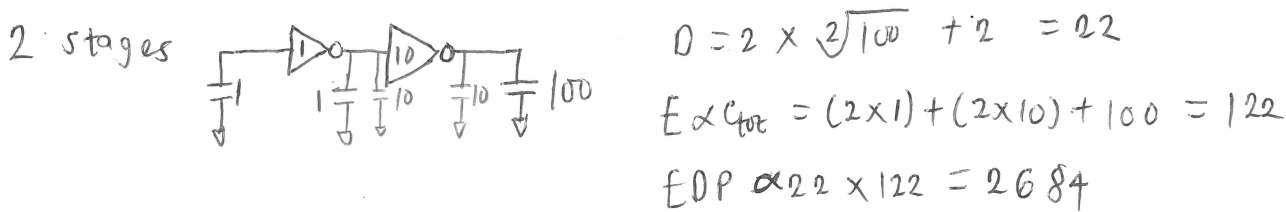 2 stages
1 10
1 1 10 10 100
D = 2 × ²√100 + 2 = 22
E ∝ Ctot = (2×1) + (2×10) + 100 = 122
EDP ∝ 22 × 122 = 2684